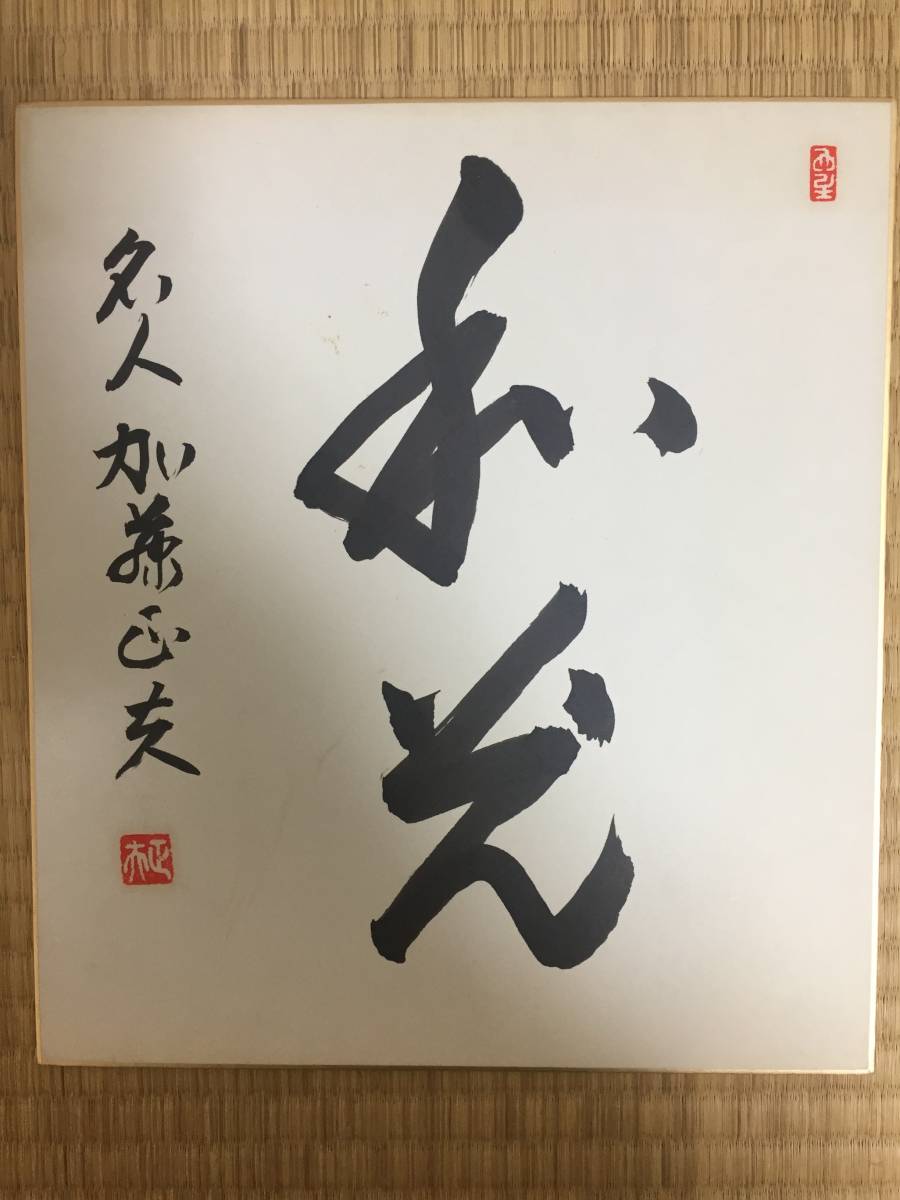 和光
名人 加藤正夫
正夫